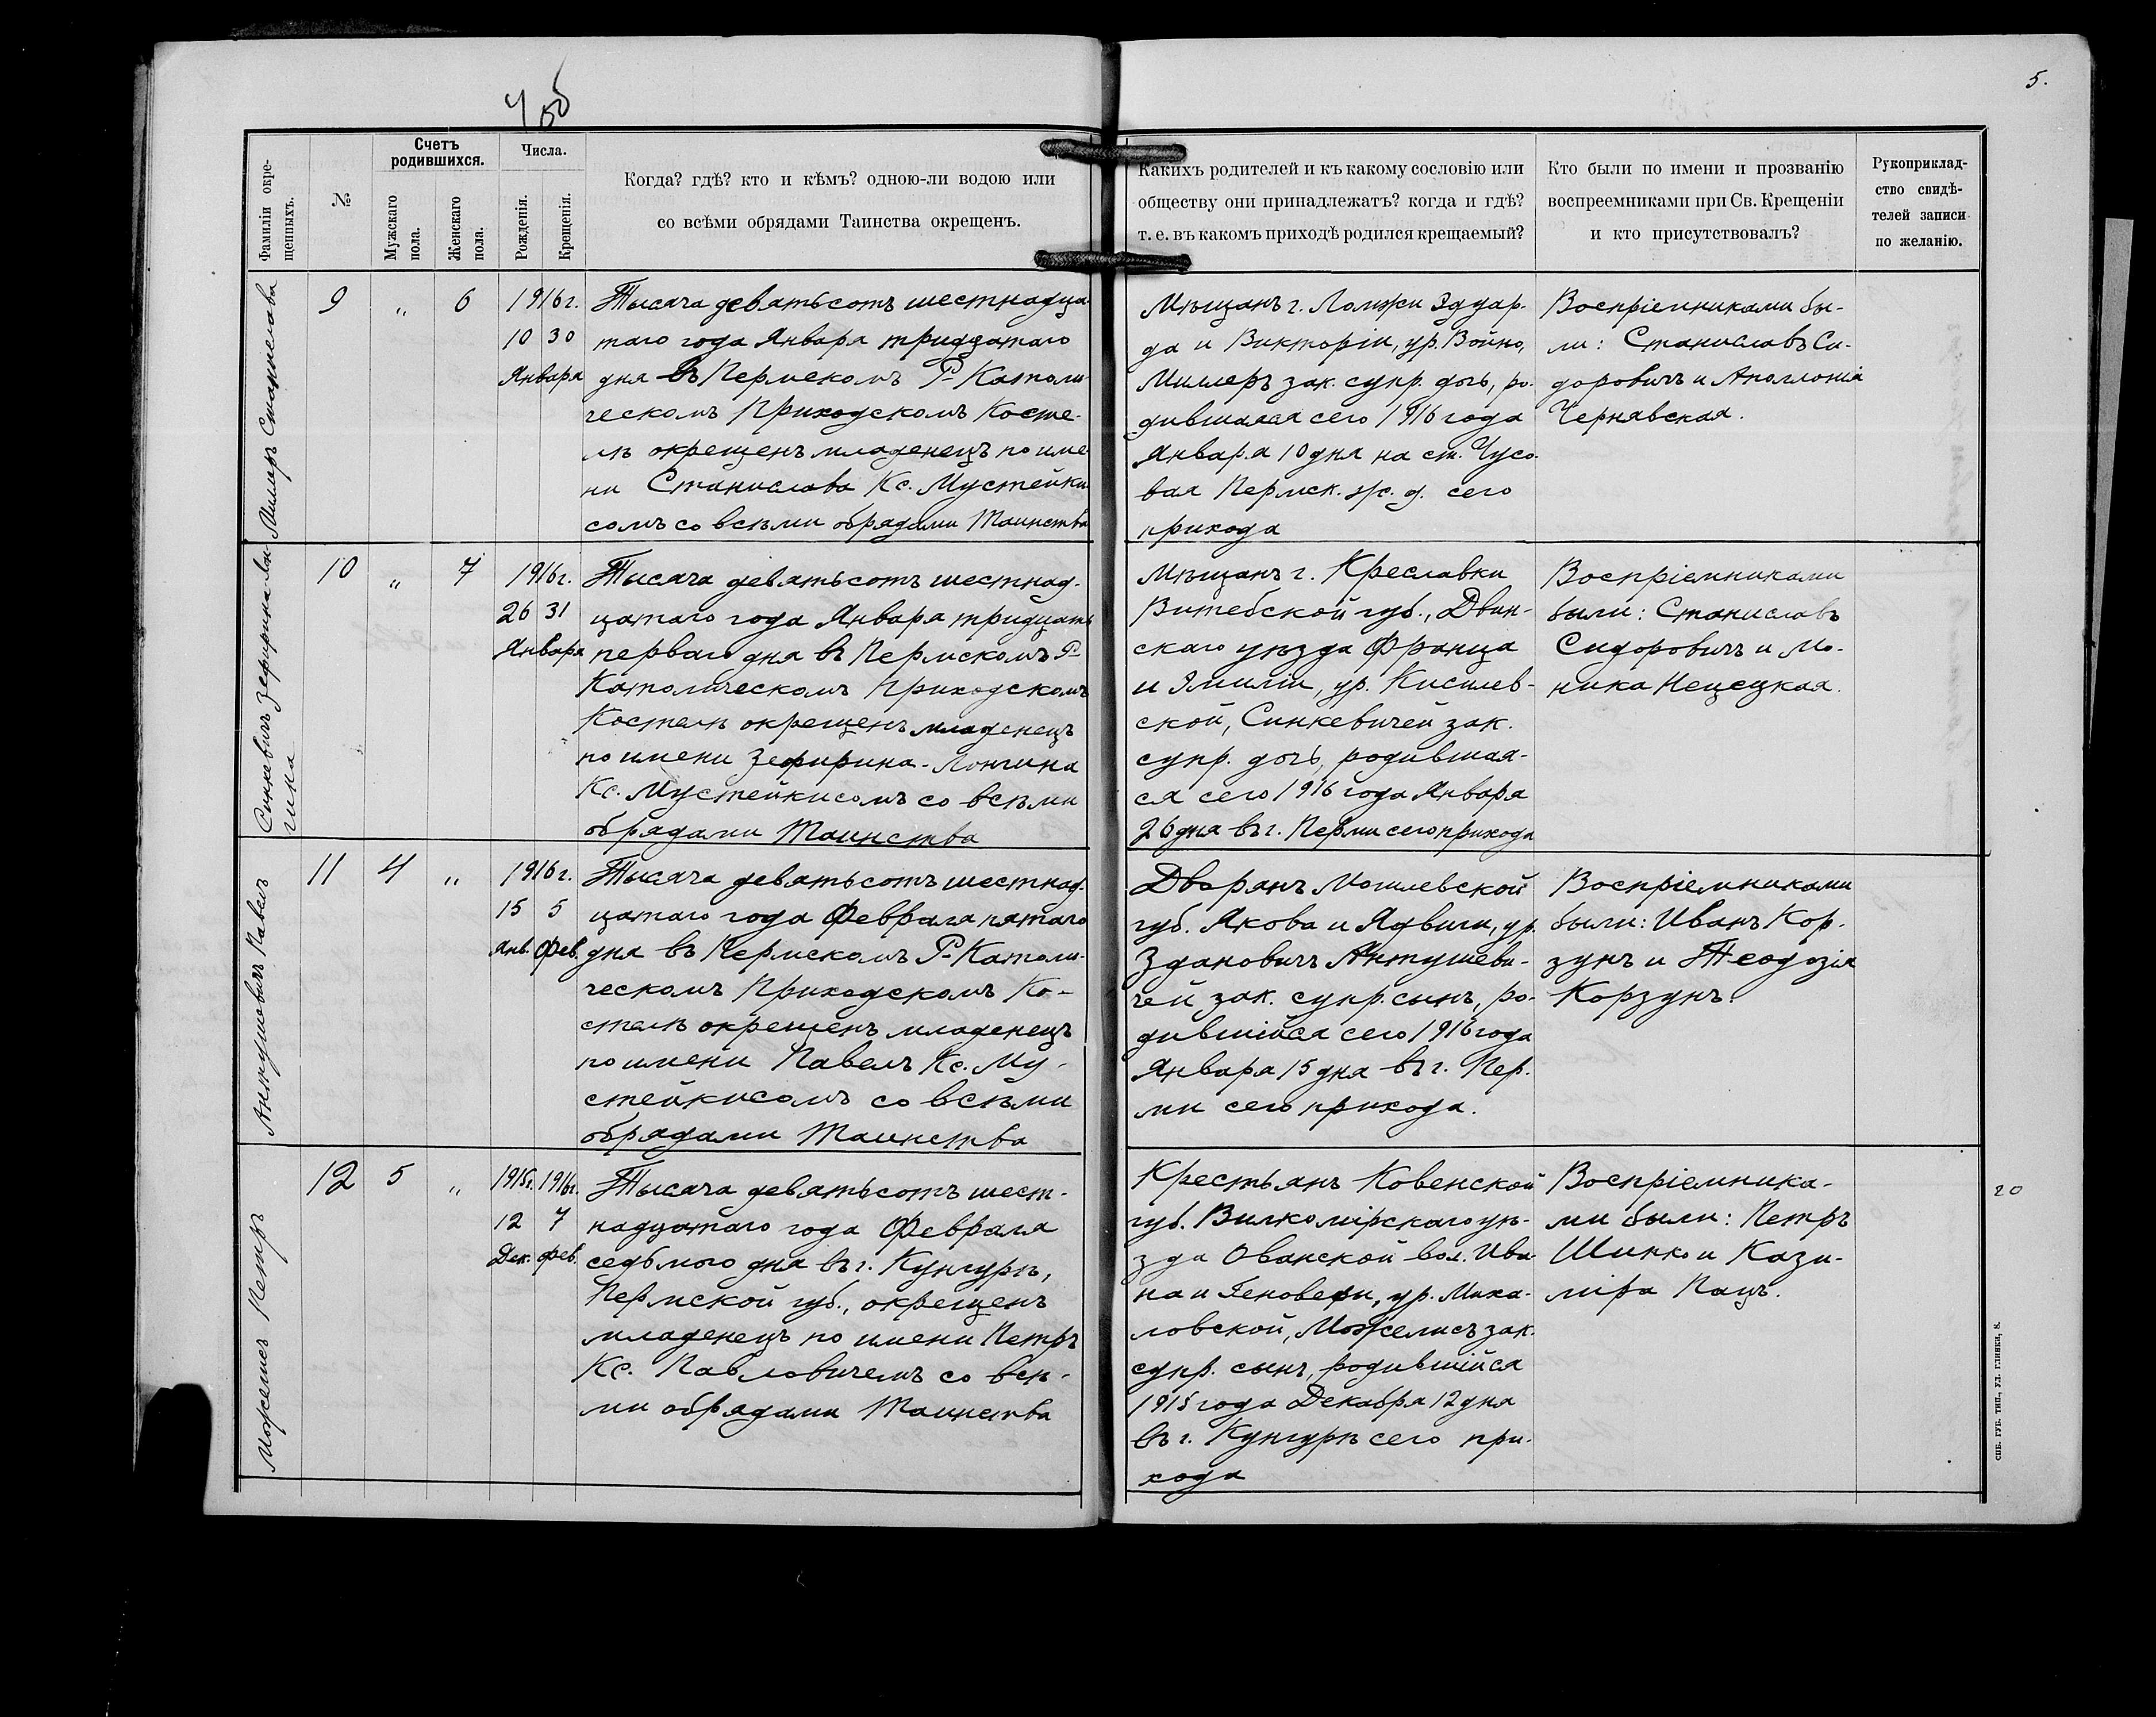 4 об
5.
Фамиліи окре-
щенныхъ.
№
Счетъ
родившихся.
Мужскаго
пола.
Женскаго
пола.
Числа.
Рожденія.
Крещенія.
Когда? гдѣ? кто и кѣмъ? одною-ли водою или
со всѣми обрядами Таинства окрещенъ.
Какихъ родителей и къ какому сословію или
обществу они принадлежатъ? когда и гдѣ?
т. е. въ какомъ приходѣ родился крещаемый?
Кто были по имени и прозванію
воспреемниками при Св. Крещеніи
и кто присутствовалъ?
Рукоприклад-
ство свидѣ-
телей записи
по желанію.
Миллеръ Станислава
9 „ 6
1916 г.
10 30
Января
Тысяча девятьсотъ шестнадца-
таго года Января тридцатаго
дня въ Пермскомъ Р-Католи-
ческомъ Приходскомъ Косте-
лѣ окрещенъ младенецъ по име-
ни Станислава Кс. Мустейки-
сомъ со всѣми обрядами Таинства
Мѣщанъ г. Ломжи Эдуар-
да и Викторіи, ур. Войно,
Миллеръ зак. супр. дочь, ро-
дившаяся сего 1916 года
Января 10 дня на ст. Чусо-
вая Пермск. ж. д. сего
прихода
Воспріемниками бы-
ли: Станиславъ Си-
доровичъ и Аполлонія
Чернявская.
Синкевичъ Зефирина-Лон-
гина
10 „ 7
1916 г.
26 31
Января
Тысяча девятьсотъ шестнад-
цатаго года Января тридцать
перваго дня въ Пермскомъ Р-
Католическомъ Приходскомъ
Костелѣ окрещенъ младенецъ
по имени Зефирина-Лонгина
Кс. Мустейкисомъ со всѣми
обрядами Таинства
Мѣщанъ г. Креславки
Витебской губ., Двин-
скаго уѣзда Франца
и Эмиліи, ур. Кисилев-
ской, Синкевичей зак.
супр. дочь, родившая-
ся сего 1916 года Января
26 дня въ г. Перми сего прихода
Воспріемниками
были: Станиславъ
Сидоровичъ и Мо-
ника Нецецкая.
Антушевичъ Павелъ
11 4 „
1916 г.
15 5
Янв. Фев.
Тысяча девятьсотъ шестнад-
цатаго года Февраля пятаго
дня въ Пермскомъ Р-Католи-
ческомъ Приходскомъ Ко-
стелѣ окрещенъ младенецъ
по имени Павелъ Кс. Му-
стейкисомъ со всѣми
обрядами Таинства
Дворянъ Могилевской
губ. Якова и Ядвиги, ур.
Здановичъ Антушеви-
чей зак. супр. сынъ, ро-
дившійся сего 1916 года
Января 15 дня въ г. Пер-
ми сего прихода.
Воспріемниками
были: Иванъ Кор-
зунъ и Теодозія
Корзунъ.
Можелисъ Петръ
12 5 „
1915 г. 1916 г.
12 7
Дек. Фев.
Тысяча девятьсотъ шест-
надцатаго года Февраля
седьмого дня въ г. Кунгурѣ,
Пермской губ., окрещенъ
младенецъ по имени Петръ
Кс. Павловичемъ со всѣ-
ми обрядами Таинства
Крестьянъ Ковенской
губ. Вилкомірскаго уѣ-
зда Ованской вол. Ива-
на и Геновефи, ур. Миха-
ловской, Можелисъ зак.
супр. сынъ, родившійся
1915 года Декабря 12 дня
въ г. Кунгурѣ сего при-
хода
Воспріемника-
ми были: Петръ
Шинко и Кази-
міра Пацъ.
20
СПБ. ГУБ. ТИП., УЛ. ГЛИНКИ, 8.